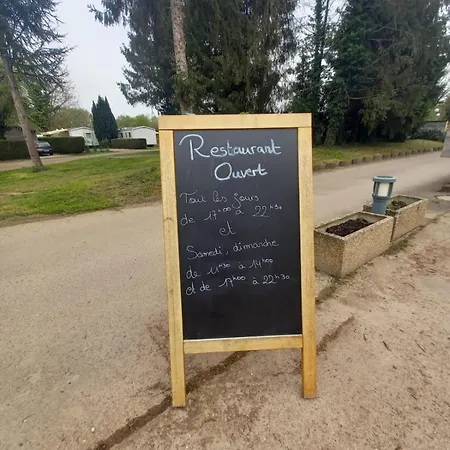 Restaurant
Ouvert
Tout les jours
de 17h00 à 22h30
et
Samedi, dimanche
de 11h30 à 14h00
et de 17h00 à 22h30